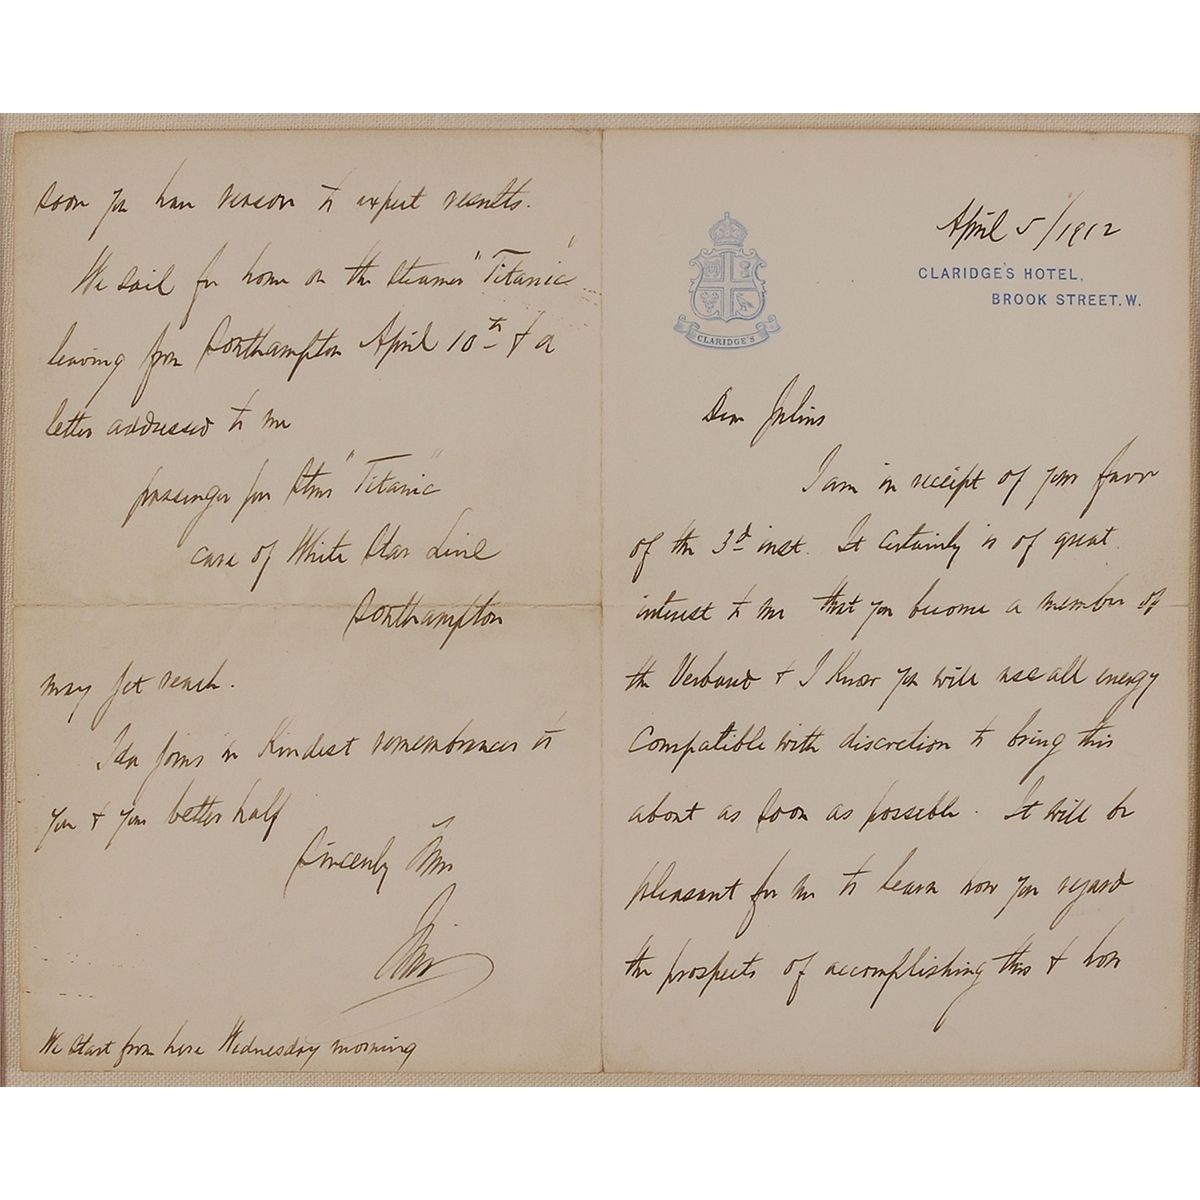 April 5/1912
CLARIDGE'S HOTEL,
BROOK STREET. W.
CLARIDGE'S
Dear Julius
I am in receipt of your favor
of the 3d inst. It certainly is of great
interest to me that you become a member of
the Verband + I know you will use all energy
compatible with discretion to bring this
about as soon as possible. It will be
pleasant for me to learn how you regard
the prospects of accomplishing this + how
soon you have reason to expect results.
We sail for home on the steamer "Titanic"
leaving from Southampton April 10th + a
letter addressed to me
passenger per Stmr "Titanic"
care of White Star Line
Southampton
may yet reach.
Ida joins in kindest remembrances to
you + your better half
Sincerely
We start from here Wednesday morning